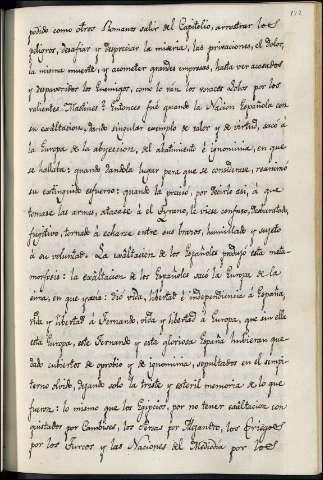 112
podido como otros Romanos salir del Capitolio, arrostrar los
peligros, desafiar y despreciar la miseria, las privaciones, el dolor,
la misma muerte, y acometer grandes empresas, hasta ver acosados
y despavoridos los Enemigos, como lo ván los voraces Lobos por los
valientes Mastines? Entonces fué quando la Nacion Española con
su exâltacion, dando singular exemplo de valor y de virtud, sacó á
la Europa de la abyeccion, del abatimiento é ignominia, en que
se hallaba: quando dandola lugar para que se considerase, reanimó
su extinguido esfuerzo: quando la precisó, por decirlo asi, á que
tomase las armas, atacase á el Tyrano, le viese confuso, desbaratado,
fugitivo, tornado á echarse entre sus brazos, humillado y sujeto
á su voluntad. La exâltacion de los Españoles produjo esta meta-
morfosis: la exâltacion de los Españoles sacó la Europa de la
sima, en que yacia: dió vida, libertad é independencia á España,
vida y libertad á Fernando, vida y libertad á Europa, que sin ella
esta Europa, este Fernando y esta gloriosa España hubieran que-
dado cubiertos de oprobio y de ignominia, sepultados en el sempi-
terno olvido, dejando solo la triste y esteril memoria de lo que
fueron: lo mismo que los Egipcios, por no tener exâltacion con-
quistados por Cambises, los Persas por Alejandro, los Griegos
por los Turcos y las Naciones del Mediodia por los